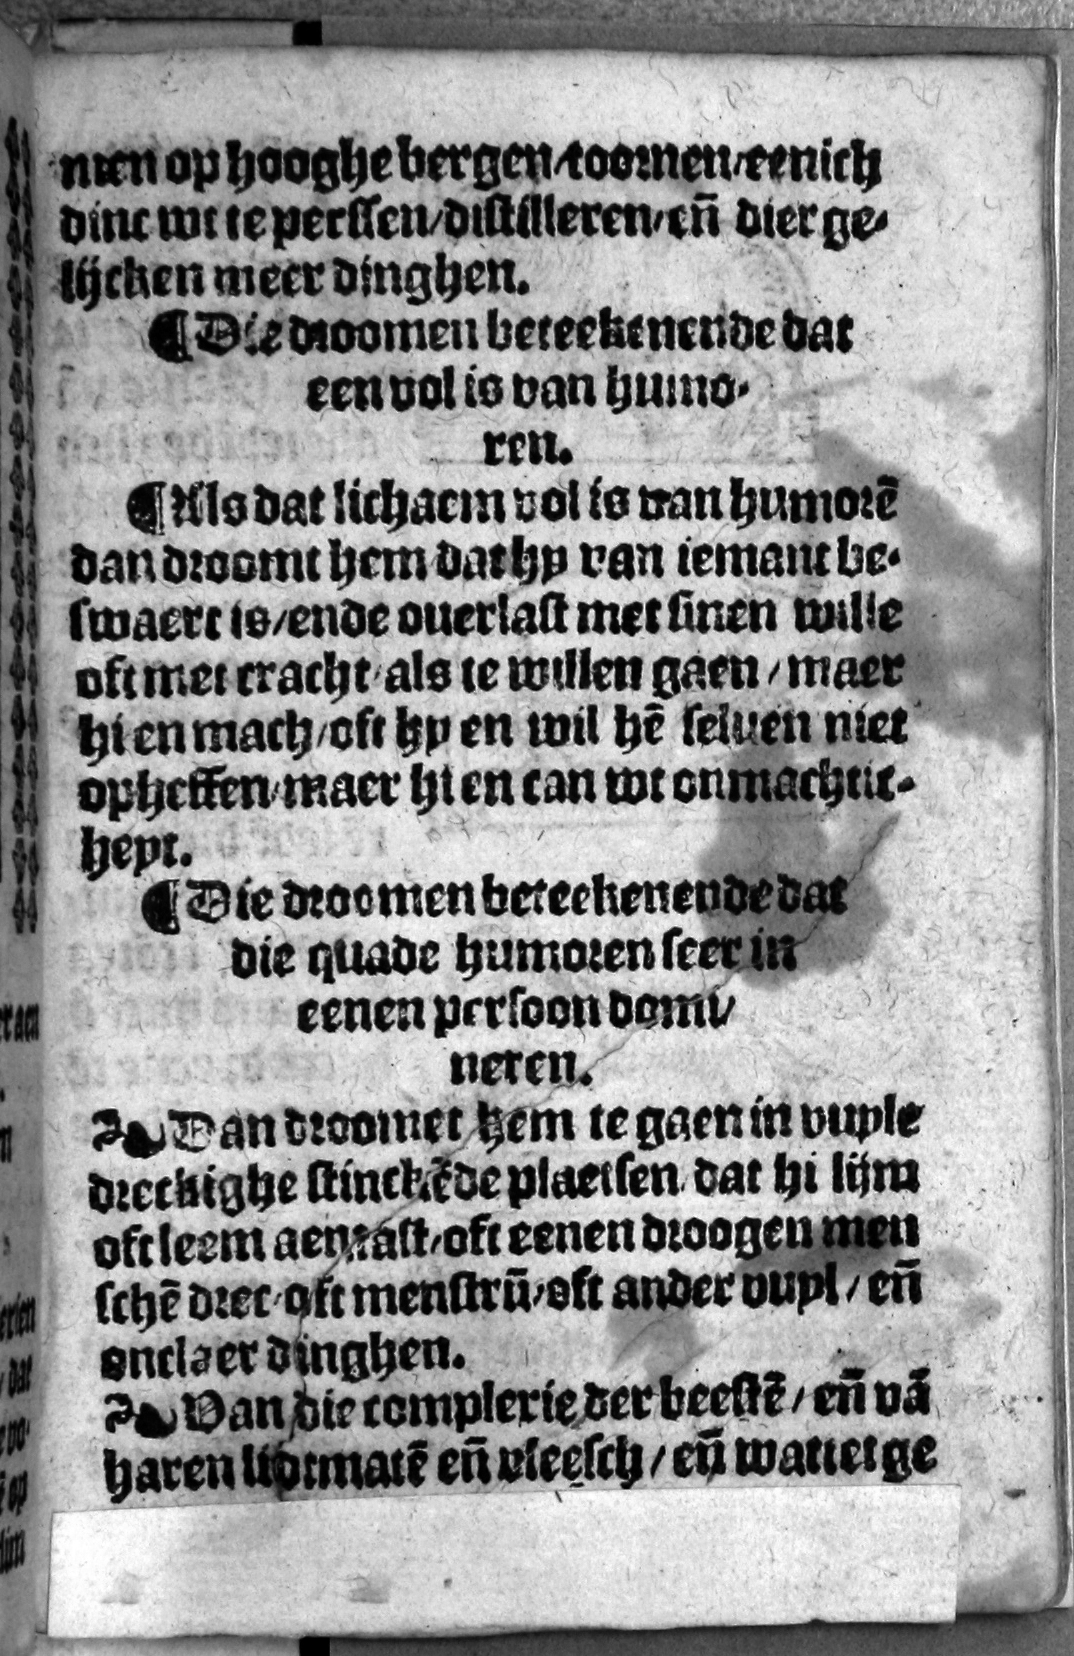 men op hooghe bergen/toornen/eenich
dinc wt te perssen/distilleren/eñ dier ge-
lijcken meer dinghen.
¶ Die droomen beteekenende dat
een vol is van humo-
ren.
¶ Als dat lichaem vol is van humorē
dan droomt hem dat hy van iemant be-
swaert is/ende ouerlast met sinen wille
oft met cracht/als te willen gaen/maer
hi en mach/oft hy en wil hē seluen niet
opheffen/maer hi en can wt onmachtic-
heyt.
¶ Die droomen beteekenende dat
die quade humoren seer in
eenen persoon domi/
neren.
Dan droomet hem te gaen in vuyle
dreckighe stinckēde plaetsen/dat hi lijm
oft leem aentast/oft eenen droogen men
schē drec/oft menstrū/oft ander vuyl/eñ
onclaer dinghen.
Van die complexie der beestē/eñ vā
haren lidtmatē eñ vleesch/eñ wattet ge